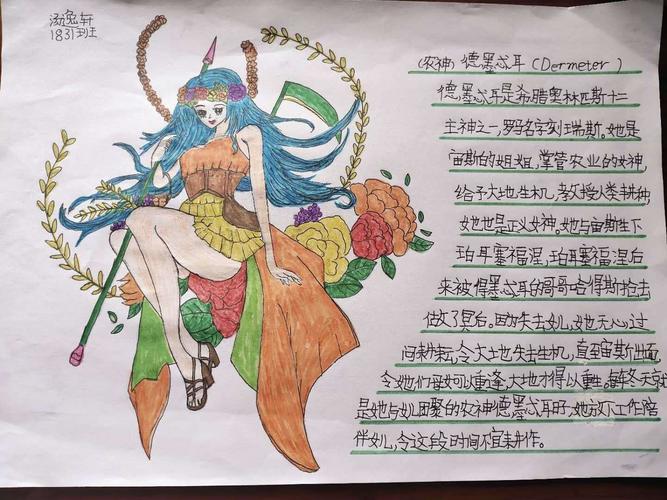 汤逸轩
1831班
(农神)德墨忒耳(Dermeter)
德墨忒耳是希腊奥林匹斯十二
主神之一,罗马名字刻瑞斯。她是
宙斯的姐姐,掌管农业的女神,
给予大地生机,教授人类耕种,
她也是正义女神。她与宙斯生下
珀耳塞福涅,珀耳塞福涅后
来被得墨忒耳的哥哥哈得斯抢去
做了冥后。因为失去女儿,她无心过
问耕耘,令大地失去生机,直至宙斯出面,
令她们母女可以重逢,大地才得以重生。每年冬天就
是她与女儿团聚的农神德墨忒耳时,她放下工作陪
伴女儿,令这段时间不宜耕作。